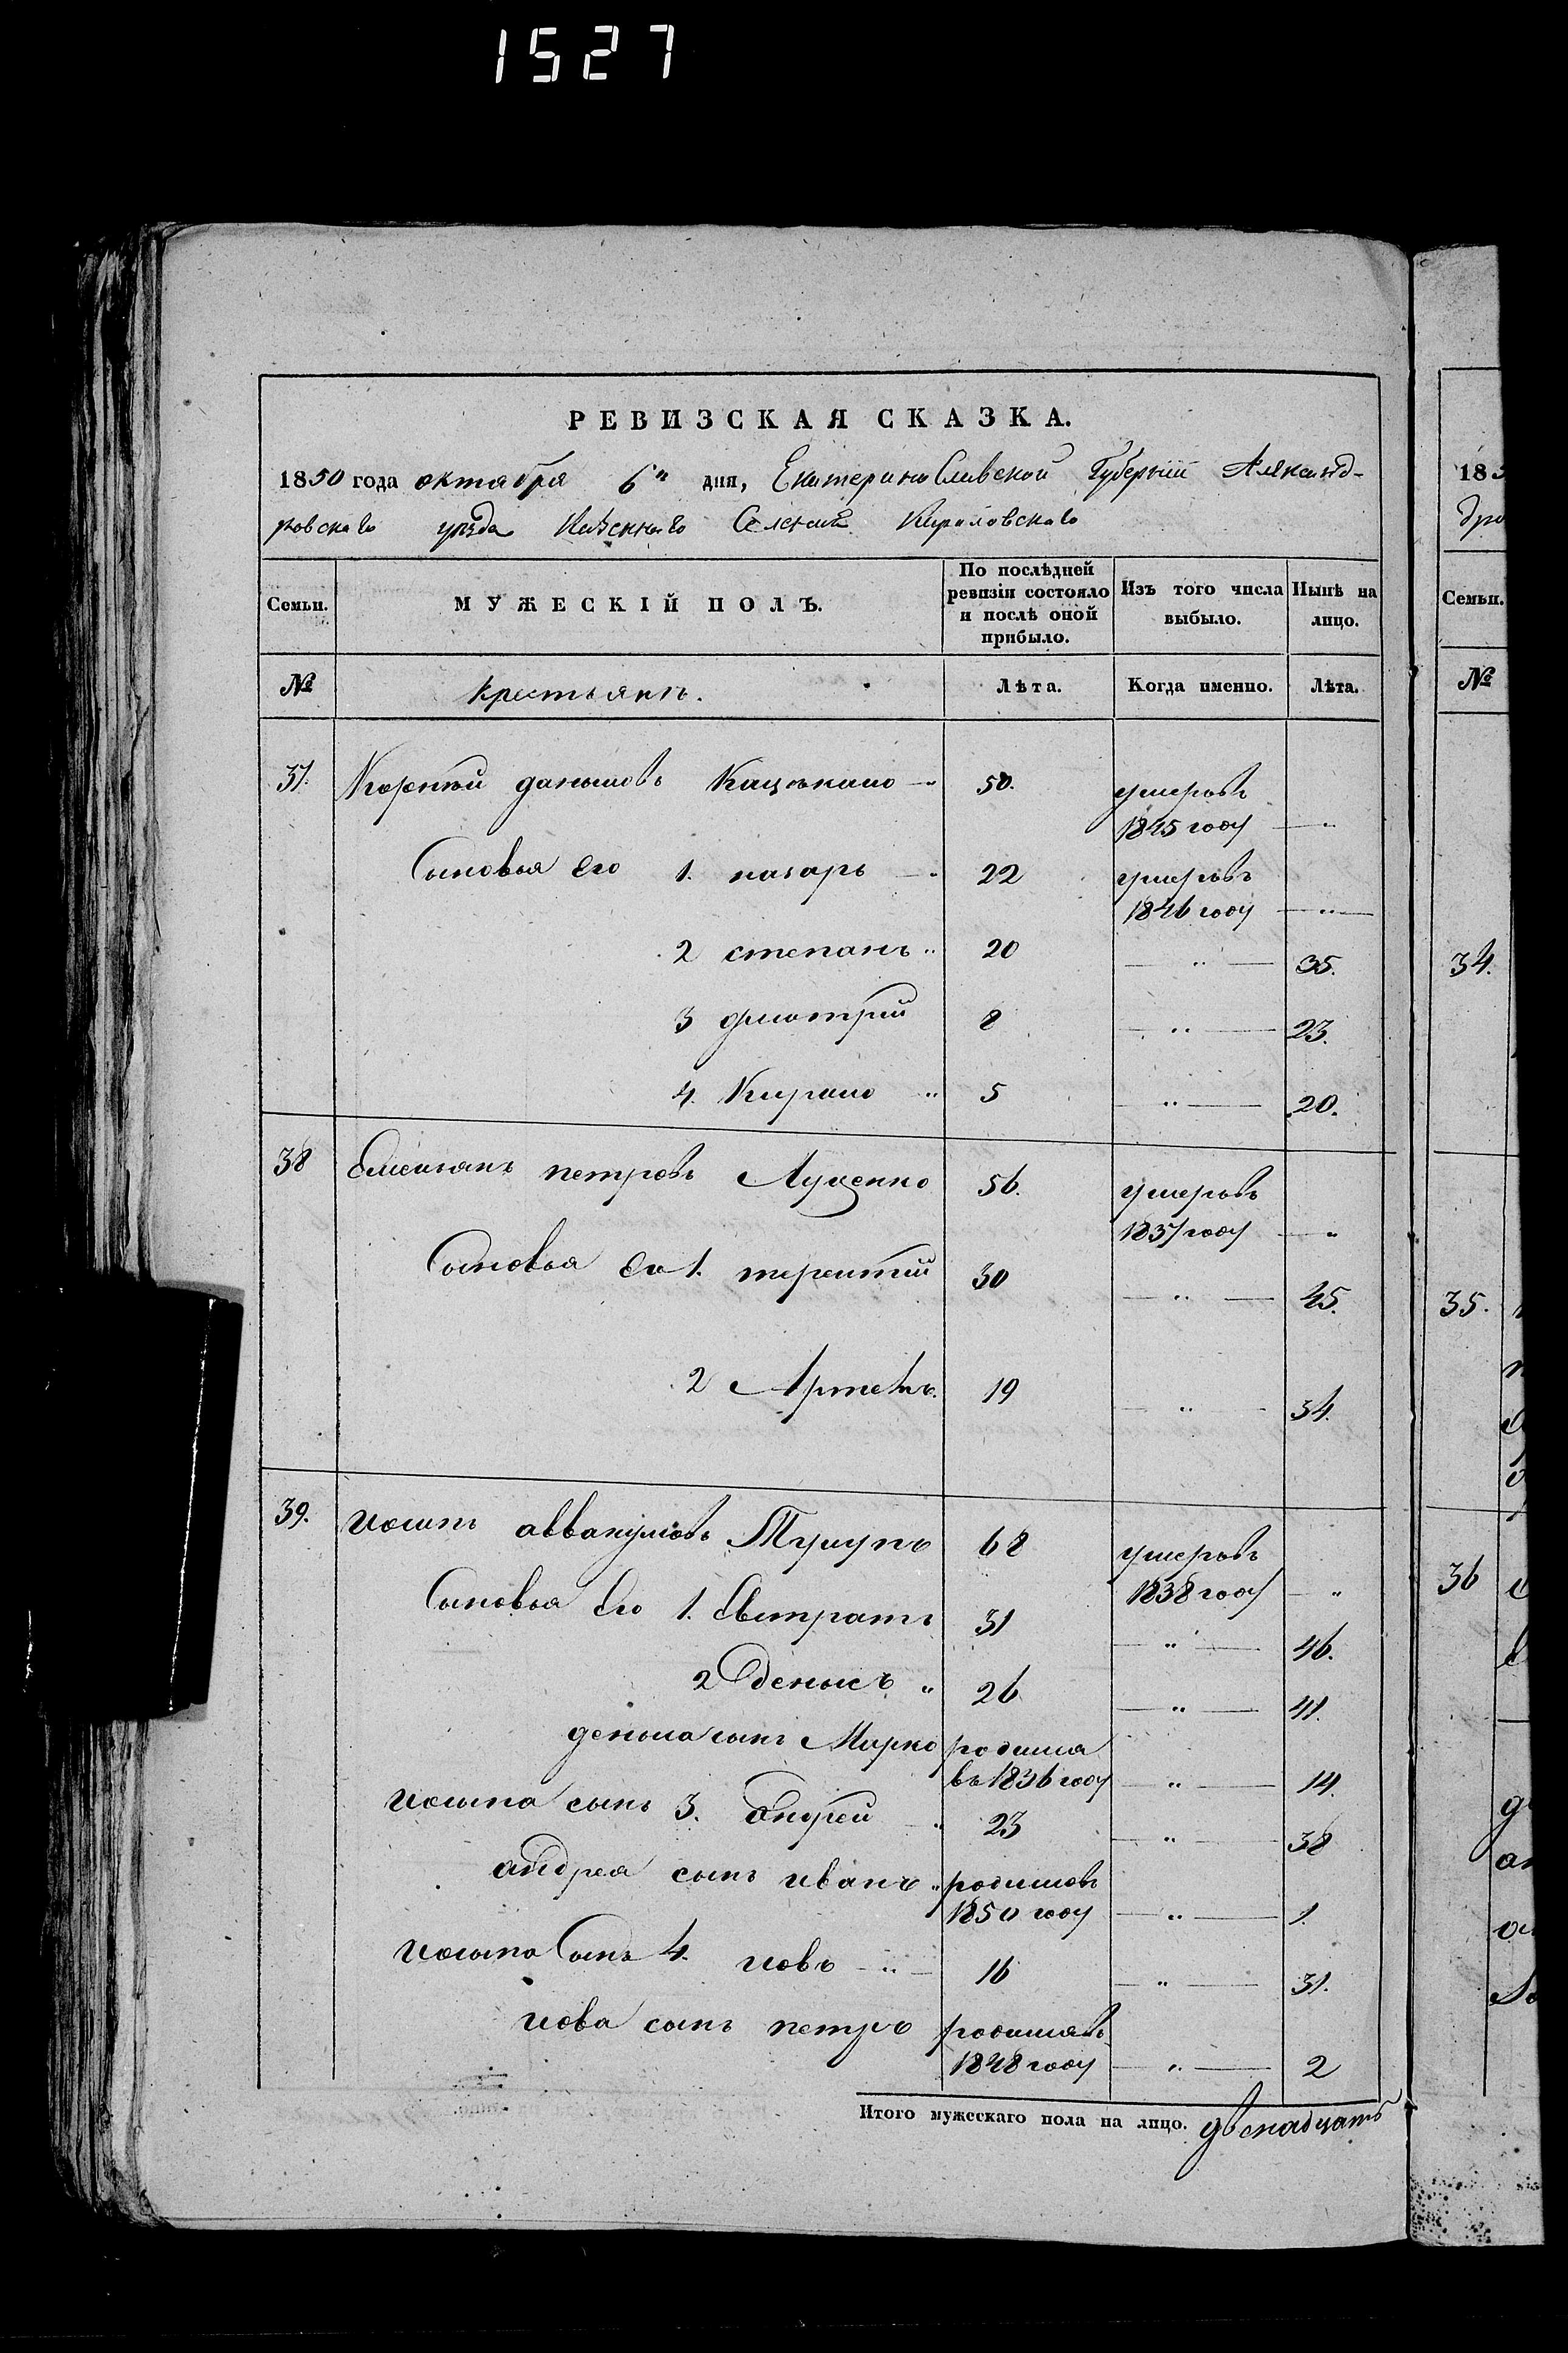 1527
РЕВИЗСКАЯ СКАЗКА.
1850 года октября 6" дня, Екатеринославской Губерніи Александ-
ровскаго уѣзда Казеннаго Селенія Кириловскаго
Семьи.
МУЖЕСКІЙ ПОЛЪ.
По послѣдней ревизіи состояло и послѣ оной прибыло.
Изъ того числа выбыло.
Нынѣ на лицо.
№ крестьянъ. Лѣта. Когда именно. Лѣта.
37. Корнѣй даныловъ 50. умеръ въ
1845 году — "
Сыновья его 1. назаръ — " 22 умеръ въ
1846 году — " —
2 степанъ " 20 — " — 35.
3 дмитрий 8 — " — 23.
4. Кирило " 5 — " — 20.
38 Емельянъ петровъ Луценко 56. умеръ въ
1837 году — "
Сыновья его 1. терентий 30 — " — 45.
2 Артемъ. 19 — " — 34.
39. иосипъ аввакумовъ 68 умеръ въ
1838 году — "
Сыновья его 1. Евстратъ 31 — " — 46.
2 денысъ " 26 — " — 41.
деныса сынъ Марко родился
въ 1836 году — " — 14.
иосипа сынъ 3. андрей — " 23 — " — 38
андрея сынъ иванъ " родился въ
1850 году — " — 1.
иосипа Сынъ 4. иовъ — " — 16 — " — 31.
иова сынъ петръ родился въ
1848 году — " — 2
Итого мужескаго пола на лицо. двенадцать
185
дро
Семьи.
№
34.
35.
36